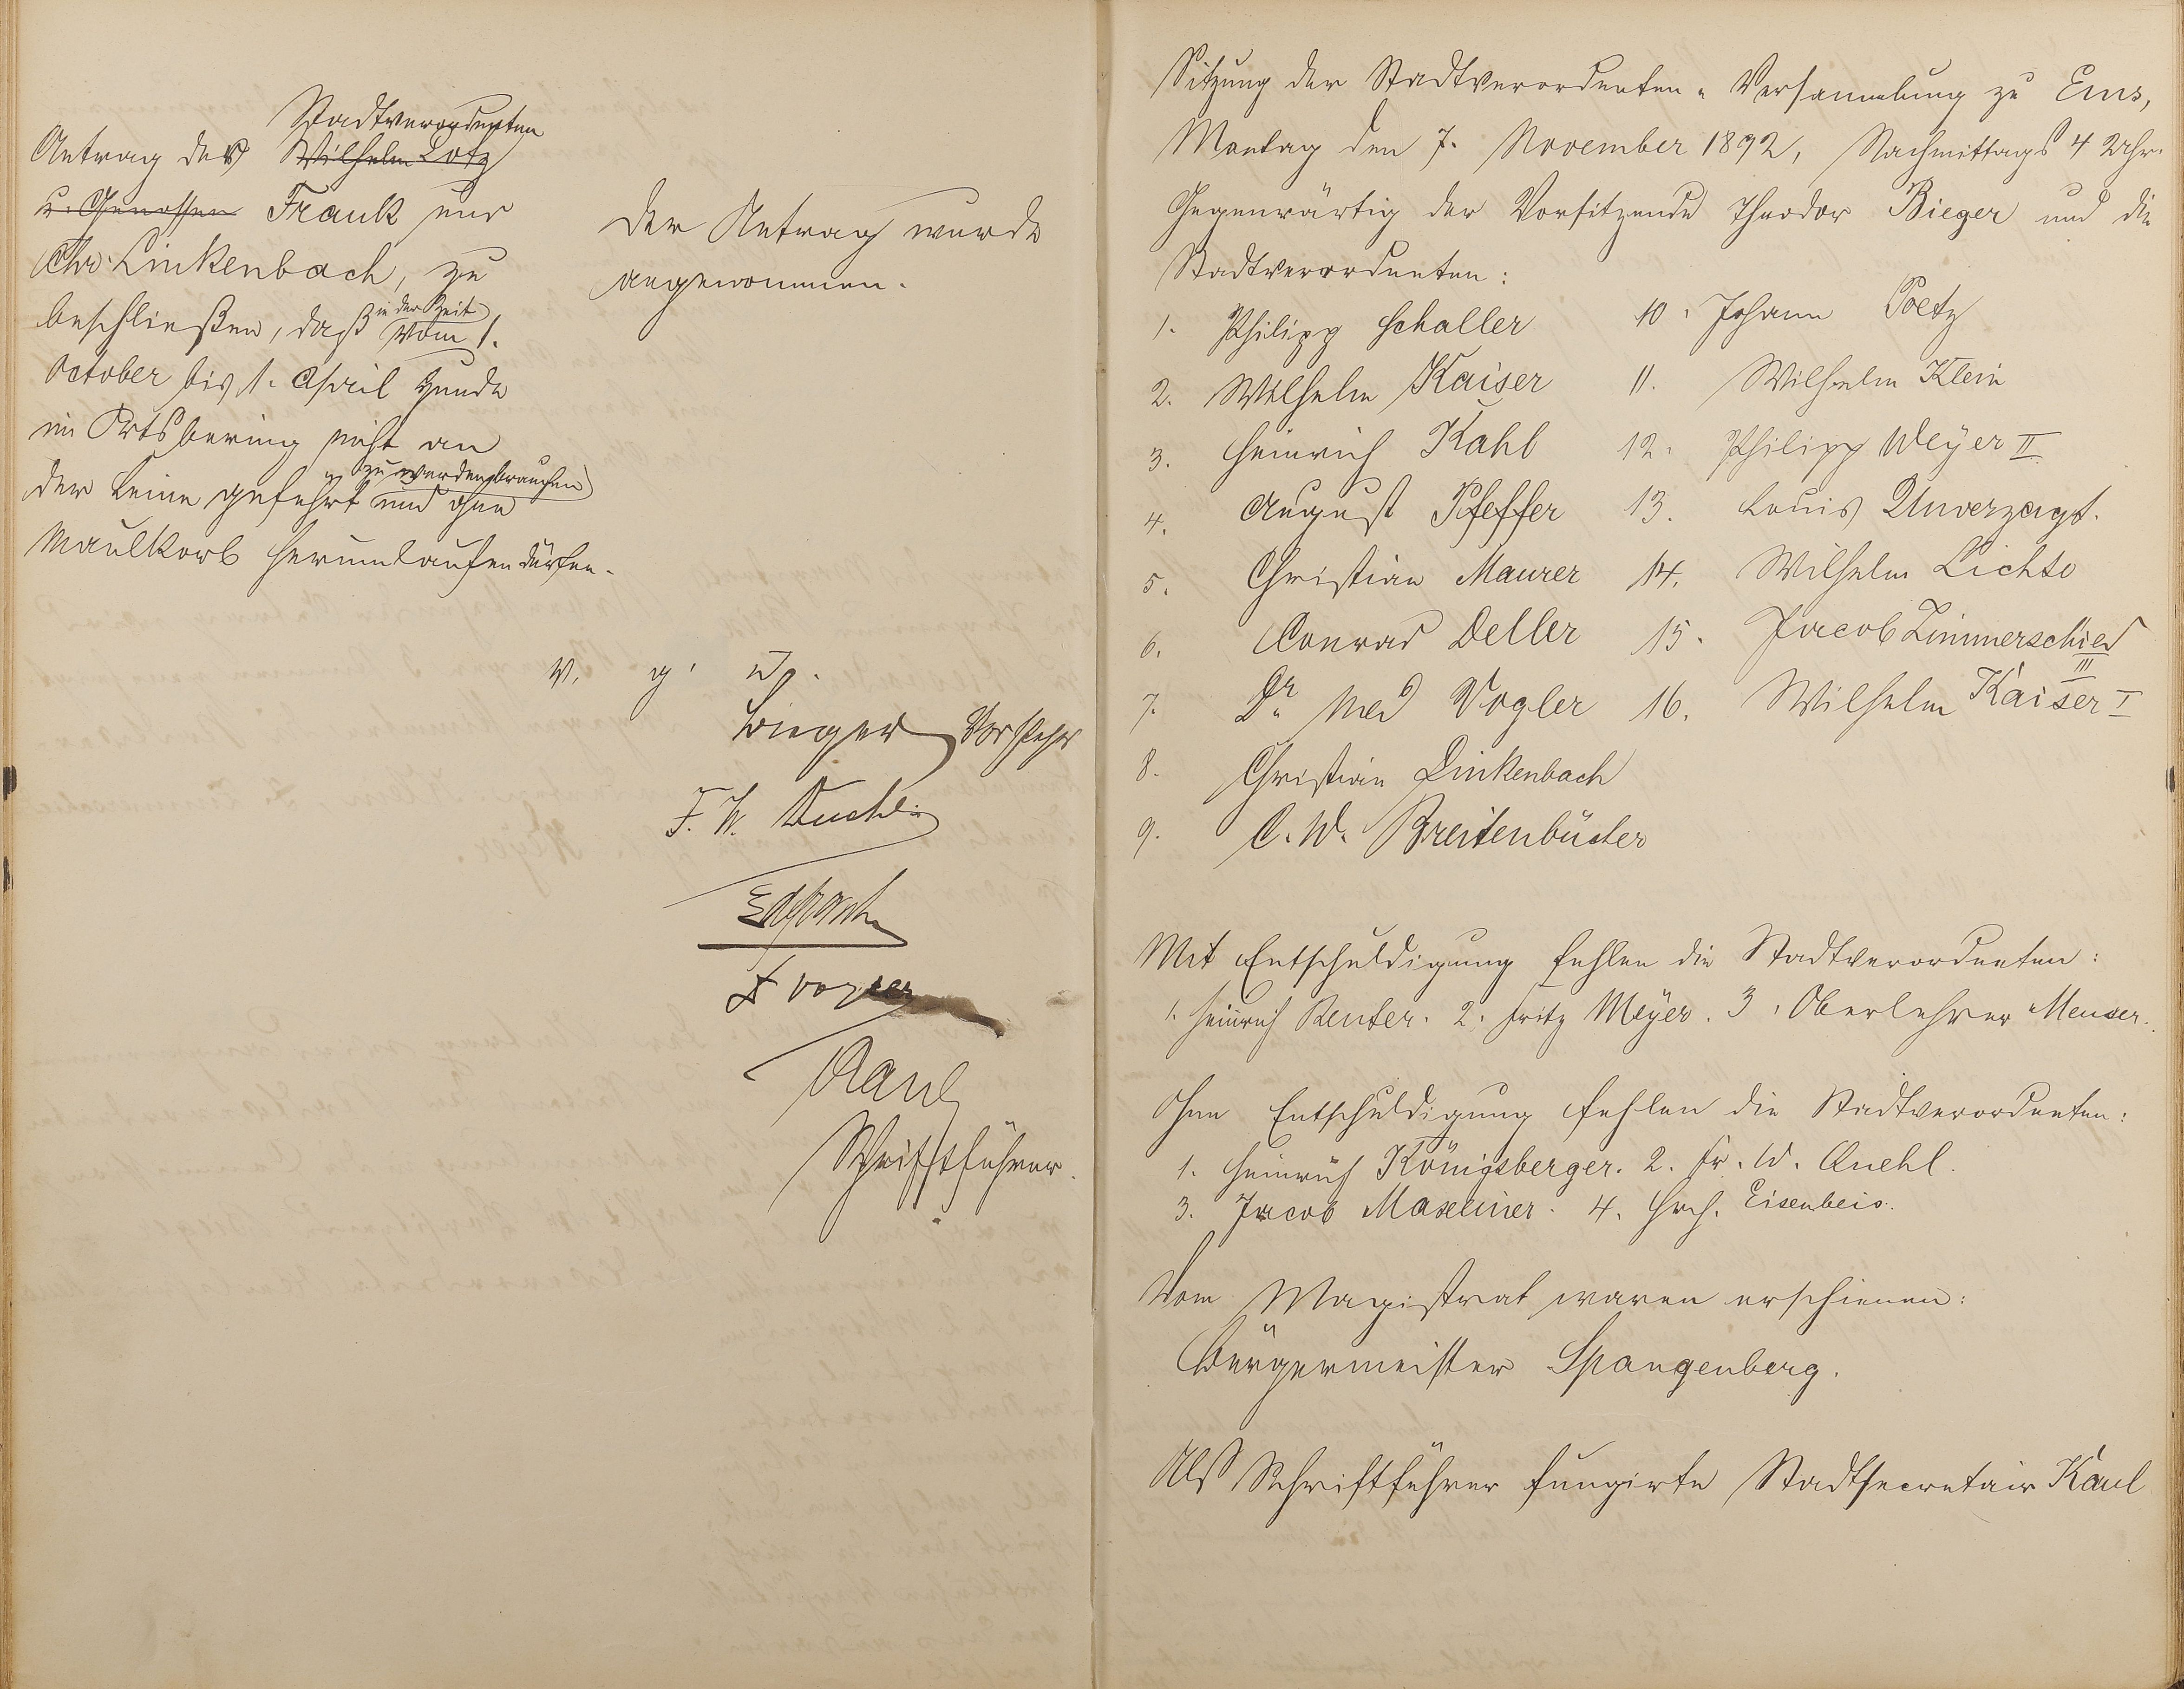 Stadtverordneten
Antrag der Wilhelm Lotz
u. Genossen Frank und
Chr. Linkenbach, zu
beschließen, daß in der Zeit vom 1.
October bis 1. April Hunde
im Ortsbering nicht an
der Leine geführt zu werden brauchen und ohne
Maulkorb herumlaufen dürfen.
Der Antrag wurde
angenommen.
v. g. u.
Bieger Vorsteher
F. W.
Kaul
Schriftführer.
Sitzung der Stadtverordneten-Versammlung zu Ems,
Montag den 7. November 1892, Nachmittags 4 Uhr.
Gegenwärtig der Vorsitzende Theodor Bieger und die
Stadtverordneten:
1. Philipp Schaller
2. Wilhelm Kaiser
3. Heinrich Kahl
4. August Pfeffer
5. Christian Maurer
6. Conrad Deller
7. Dr. med Vogler
8. Christian Linkenbach
9. C. W. Breitenbücher
10. Johann Poetz
11. Wilhelm Klein
12. Philipp Meyer II
13. Louis Unverzagt.
14. Wilhelm Licht
15. Jacob Zimmerschied III
16. Wilhelm Kaiser I
Mit Entschuldigung fehlen die Stadtverordneten:
1. Heinrich Reuter. 2. Fritz Meyer. 3. Oberlehrer Menser.
Ohne Entschuldigung fehlen die Stadtverordneten:
1. Heinrich Königsberger. 2. Fr. W. Quehl.
3. Jacob Maxeiner. 4. Hrch. Eisenbeis.
Vom Magistrat waren erschienen:
Bürgermeister Spangenberg.
Als Schriftführer fungirte Stadtsecretair Kaul